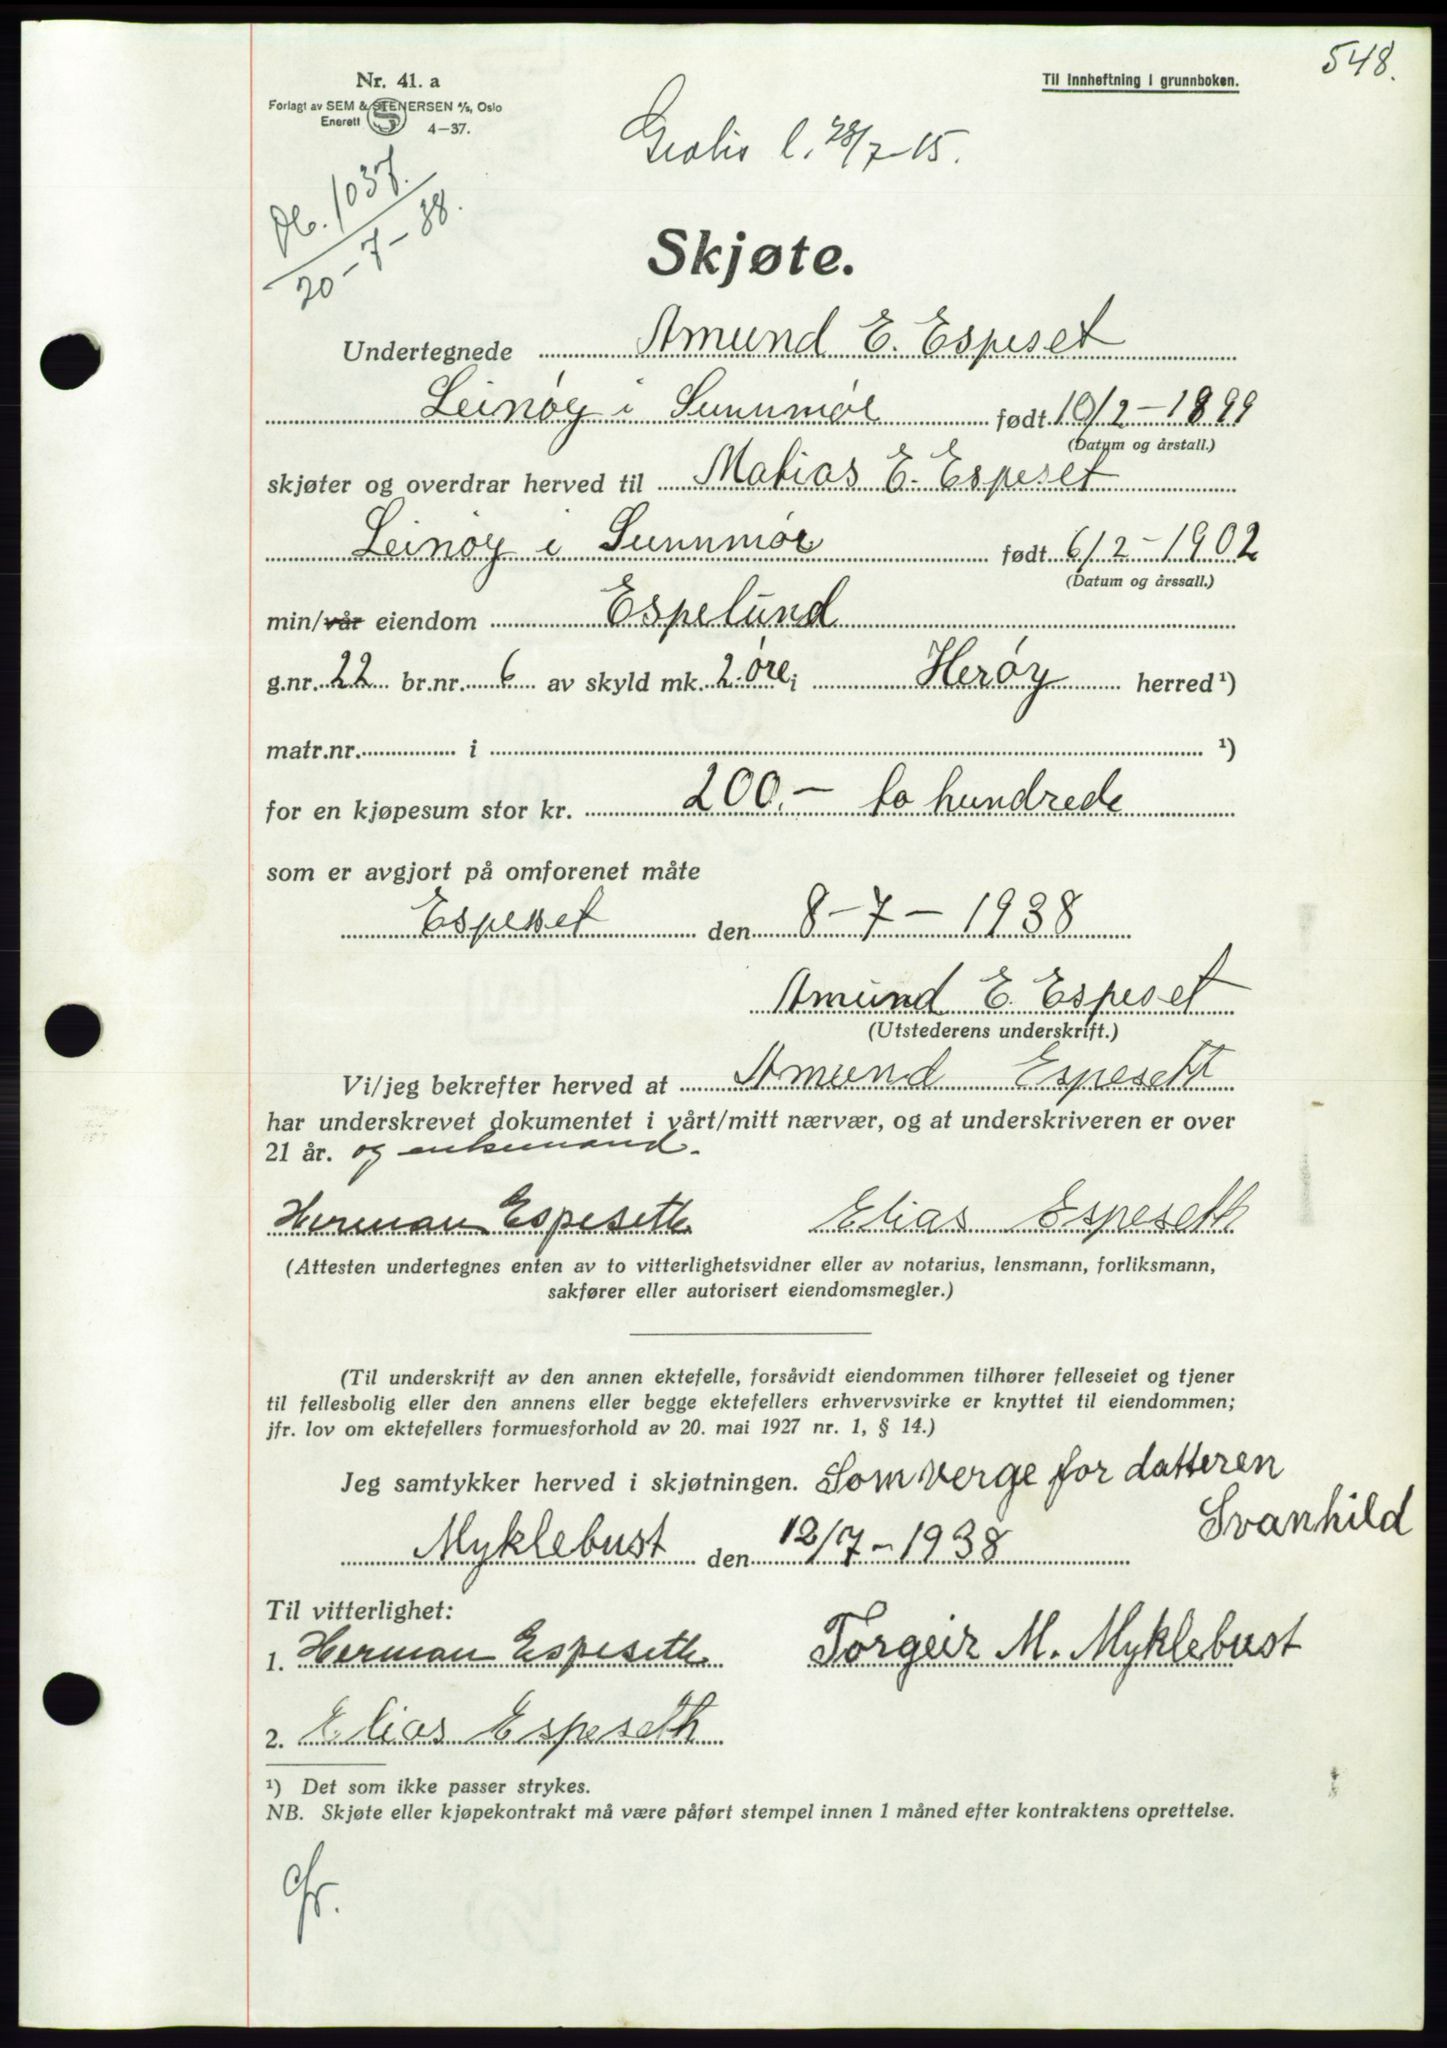 548.
Nr. 41. a
Forlagt av SEM & STENERSEN A/S, Oslo
Enerett
4-37.
Til innheftning i grunnboken.
Gratis l. 28/7-15.
Db. 1037.
20-7-38.
Skjøte.
Undertegnede Amund E. Espeset
Leinøy i Sunnmøre født 10/2-1899
(Datum og årstall.)
skjøter og overdrar herved til Matias E. Espeset
Leinøy i Sunnmøre født 6/2-1902
(Datum og årssall.)
min/vår eiendom Espelund
g.nr. 22 br.nr. 6 av skyld mk. 2 øre i Herøy herred ¹)
matr.nr. i ¹)
for en kjøpesum stor kr. 200.- to hundrede
som er avgjort på omforenet måte
Espeset den 8-7-1938
Amund E. Espeset
(Utstederens underskrift.)
Vi/jeg bekrefter herved at Amund Espesett
har underskrevet dokumentet i vårt/mitt nærvær, og at underskriveren er over
21 år. og enkemand.
Herman Espeseth Elias Espeseth
(Attesten undertegnes enten av to vitterlighetsvidner eller av notarius, lensmann, forliksmann,
sakfører eller autorisert eiendomsmegler.)
(Til underskrift av den annen ektefelle, forsåvidt eiendommen tilhører felleseiet og tjener
til fellesbolig eller den annens eller begge ektefellers erhvervsvirke er knyttet til eiendommen;
jfr. lov om ektefellers formuesforhold av 20. mai 1927 nr. 1, § 14.)
Jeg samtykker herved i skjøtningen. Som verge for datteren
Svanhild
Myklebust den 12/7-1938
Til vitterlighet:
1. Herman Espeseth Torgeir M. Myklebust
2. Elias Espeseth
¹) Det som ikke passer strykes.
NB. Skjøte eller kjøpekontrakt må være påført stempel innen 1 måned efter kontraktens oprettelse.